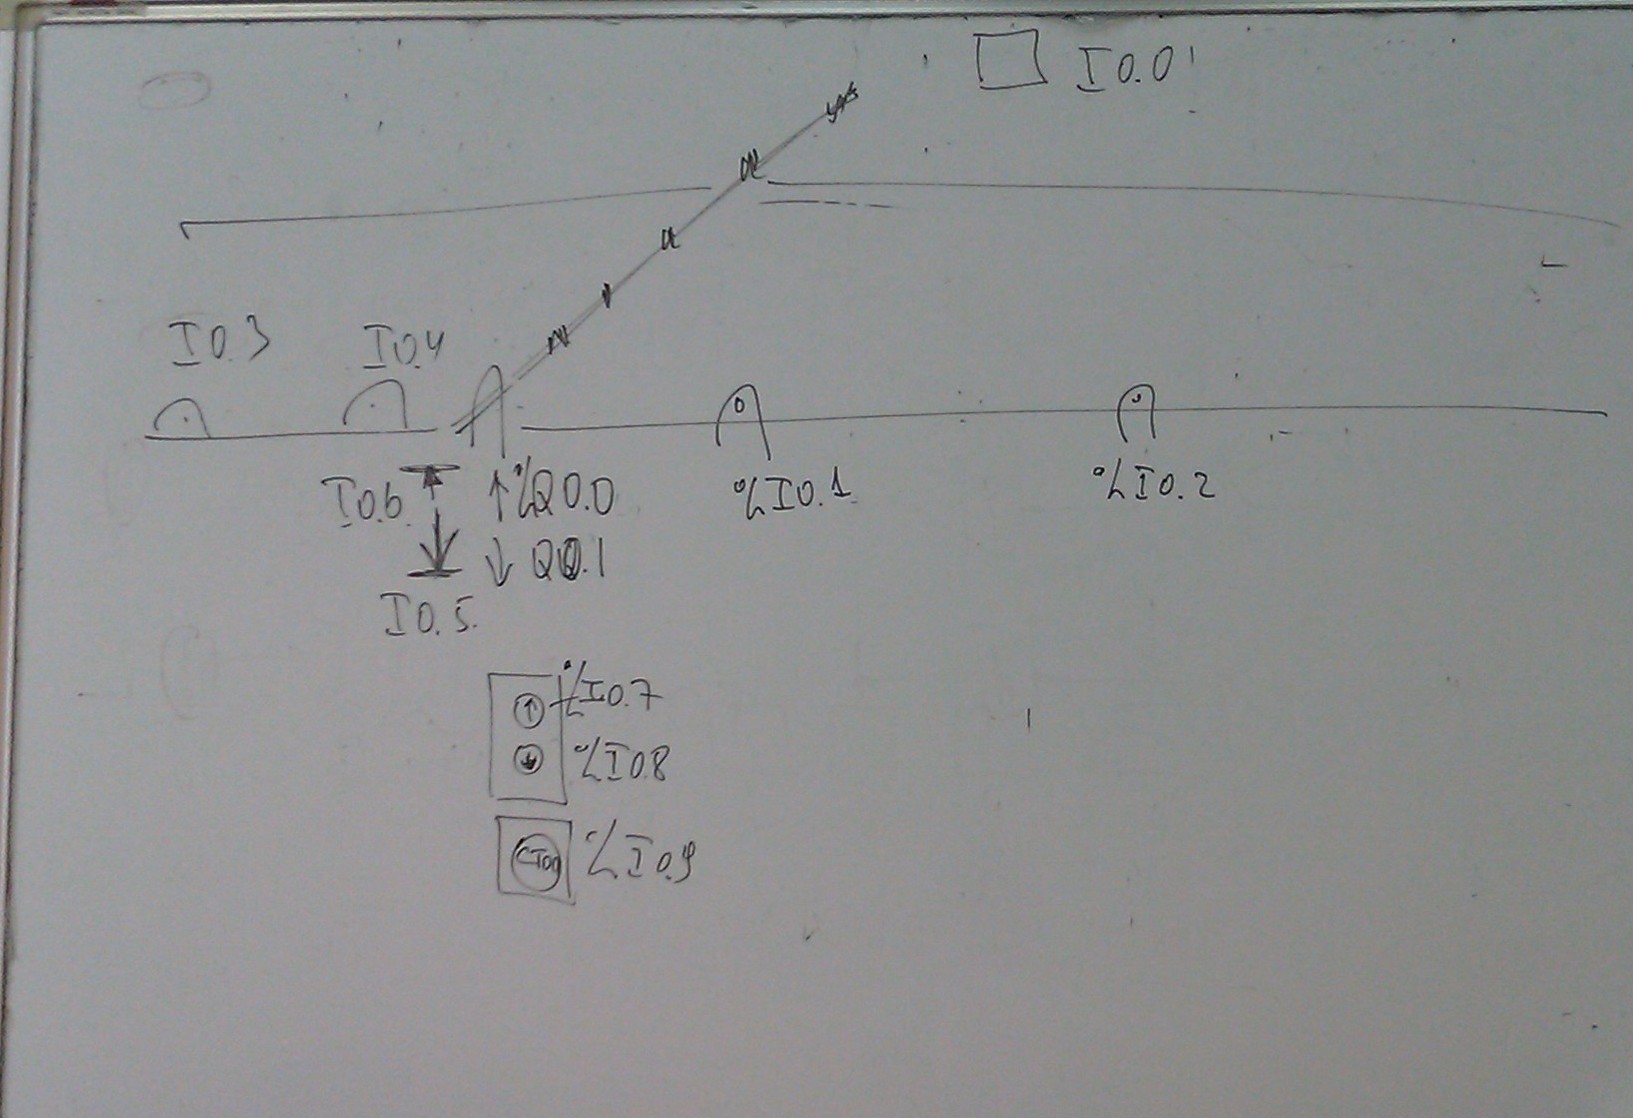 I0.0
I0.3
I0.4
I0.6
↑%Q0.0
%I0.1
%I0.2
↓ Q0.1
I0.5.
↑ %I0.7
↓ %I0.8
СТОП %I0.9